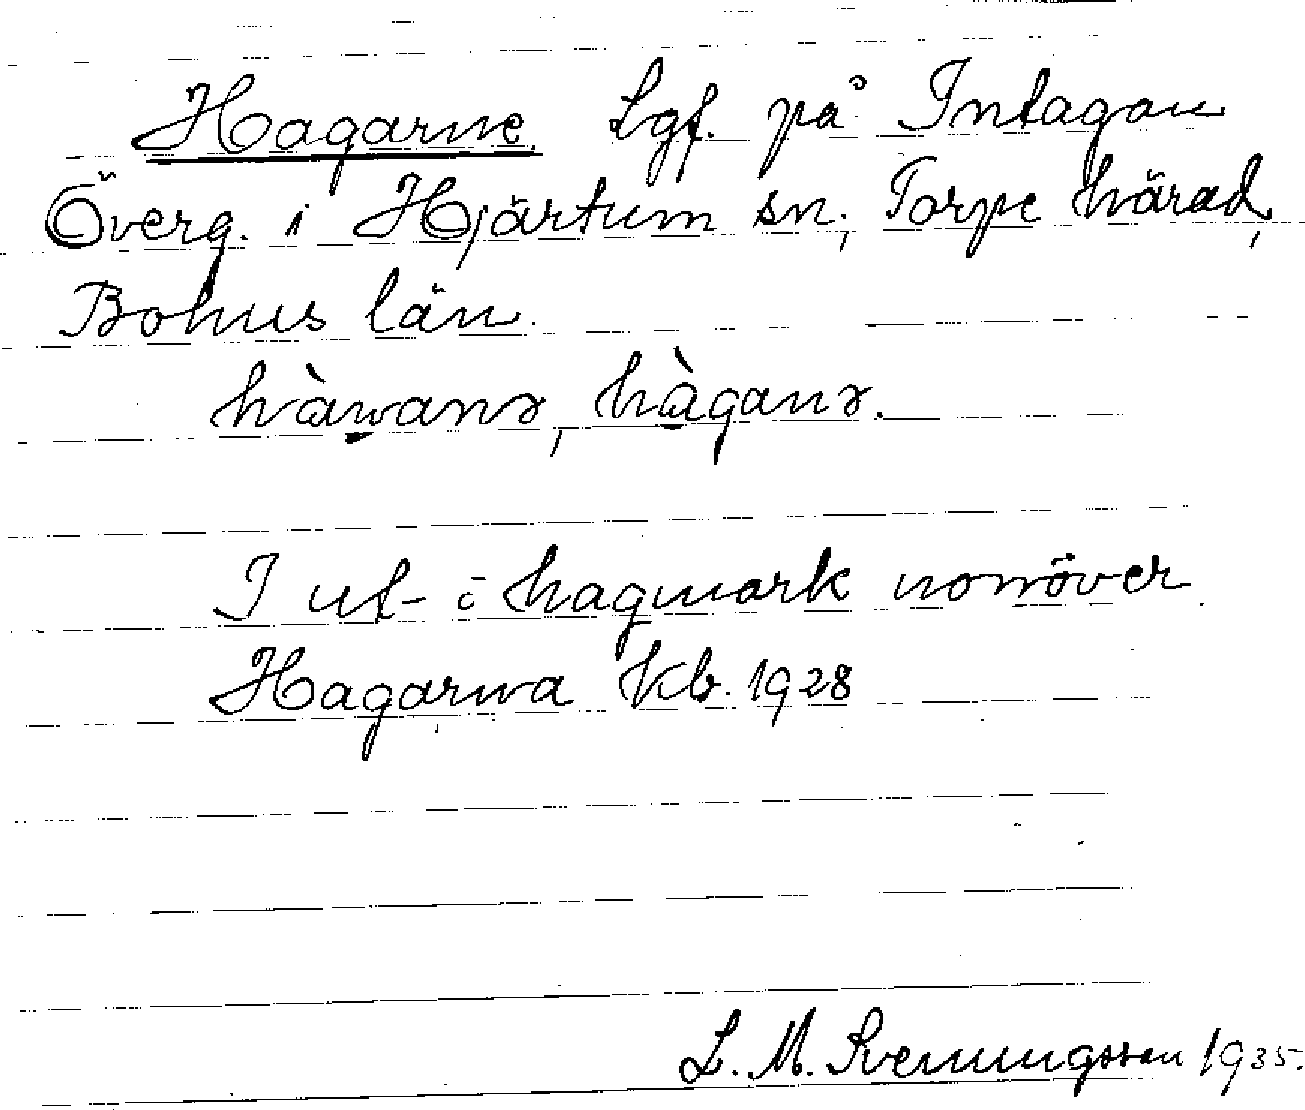 Hagarne. Lgf. på Intagan
Överg. i Hjärtum sn; Torpe härad,
Bohus län.
hàwanɤ, hàganɤ.
I ut- i hagmark norröver.
Hagarna kb. 1928
L. M. Svenungsson 1935.